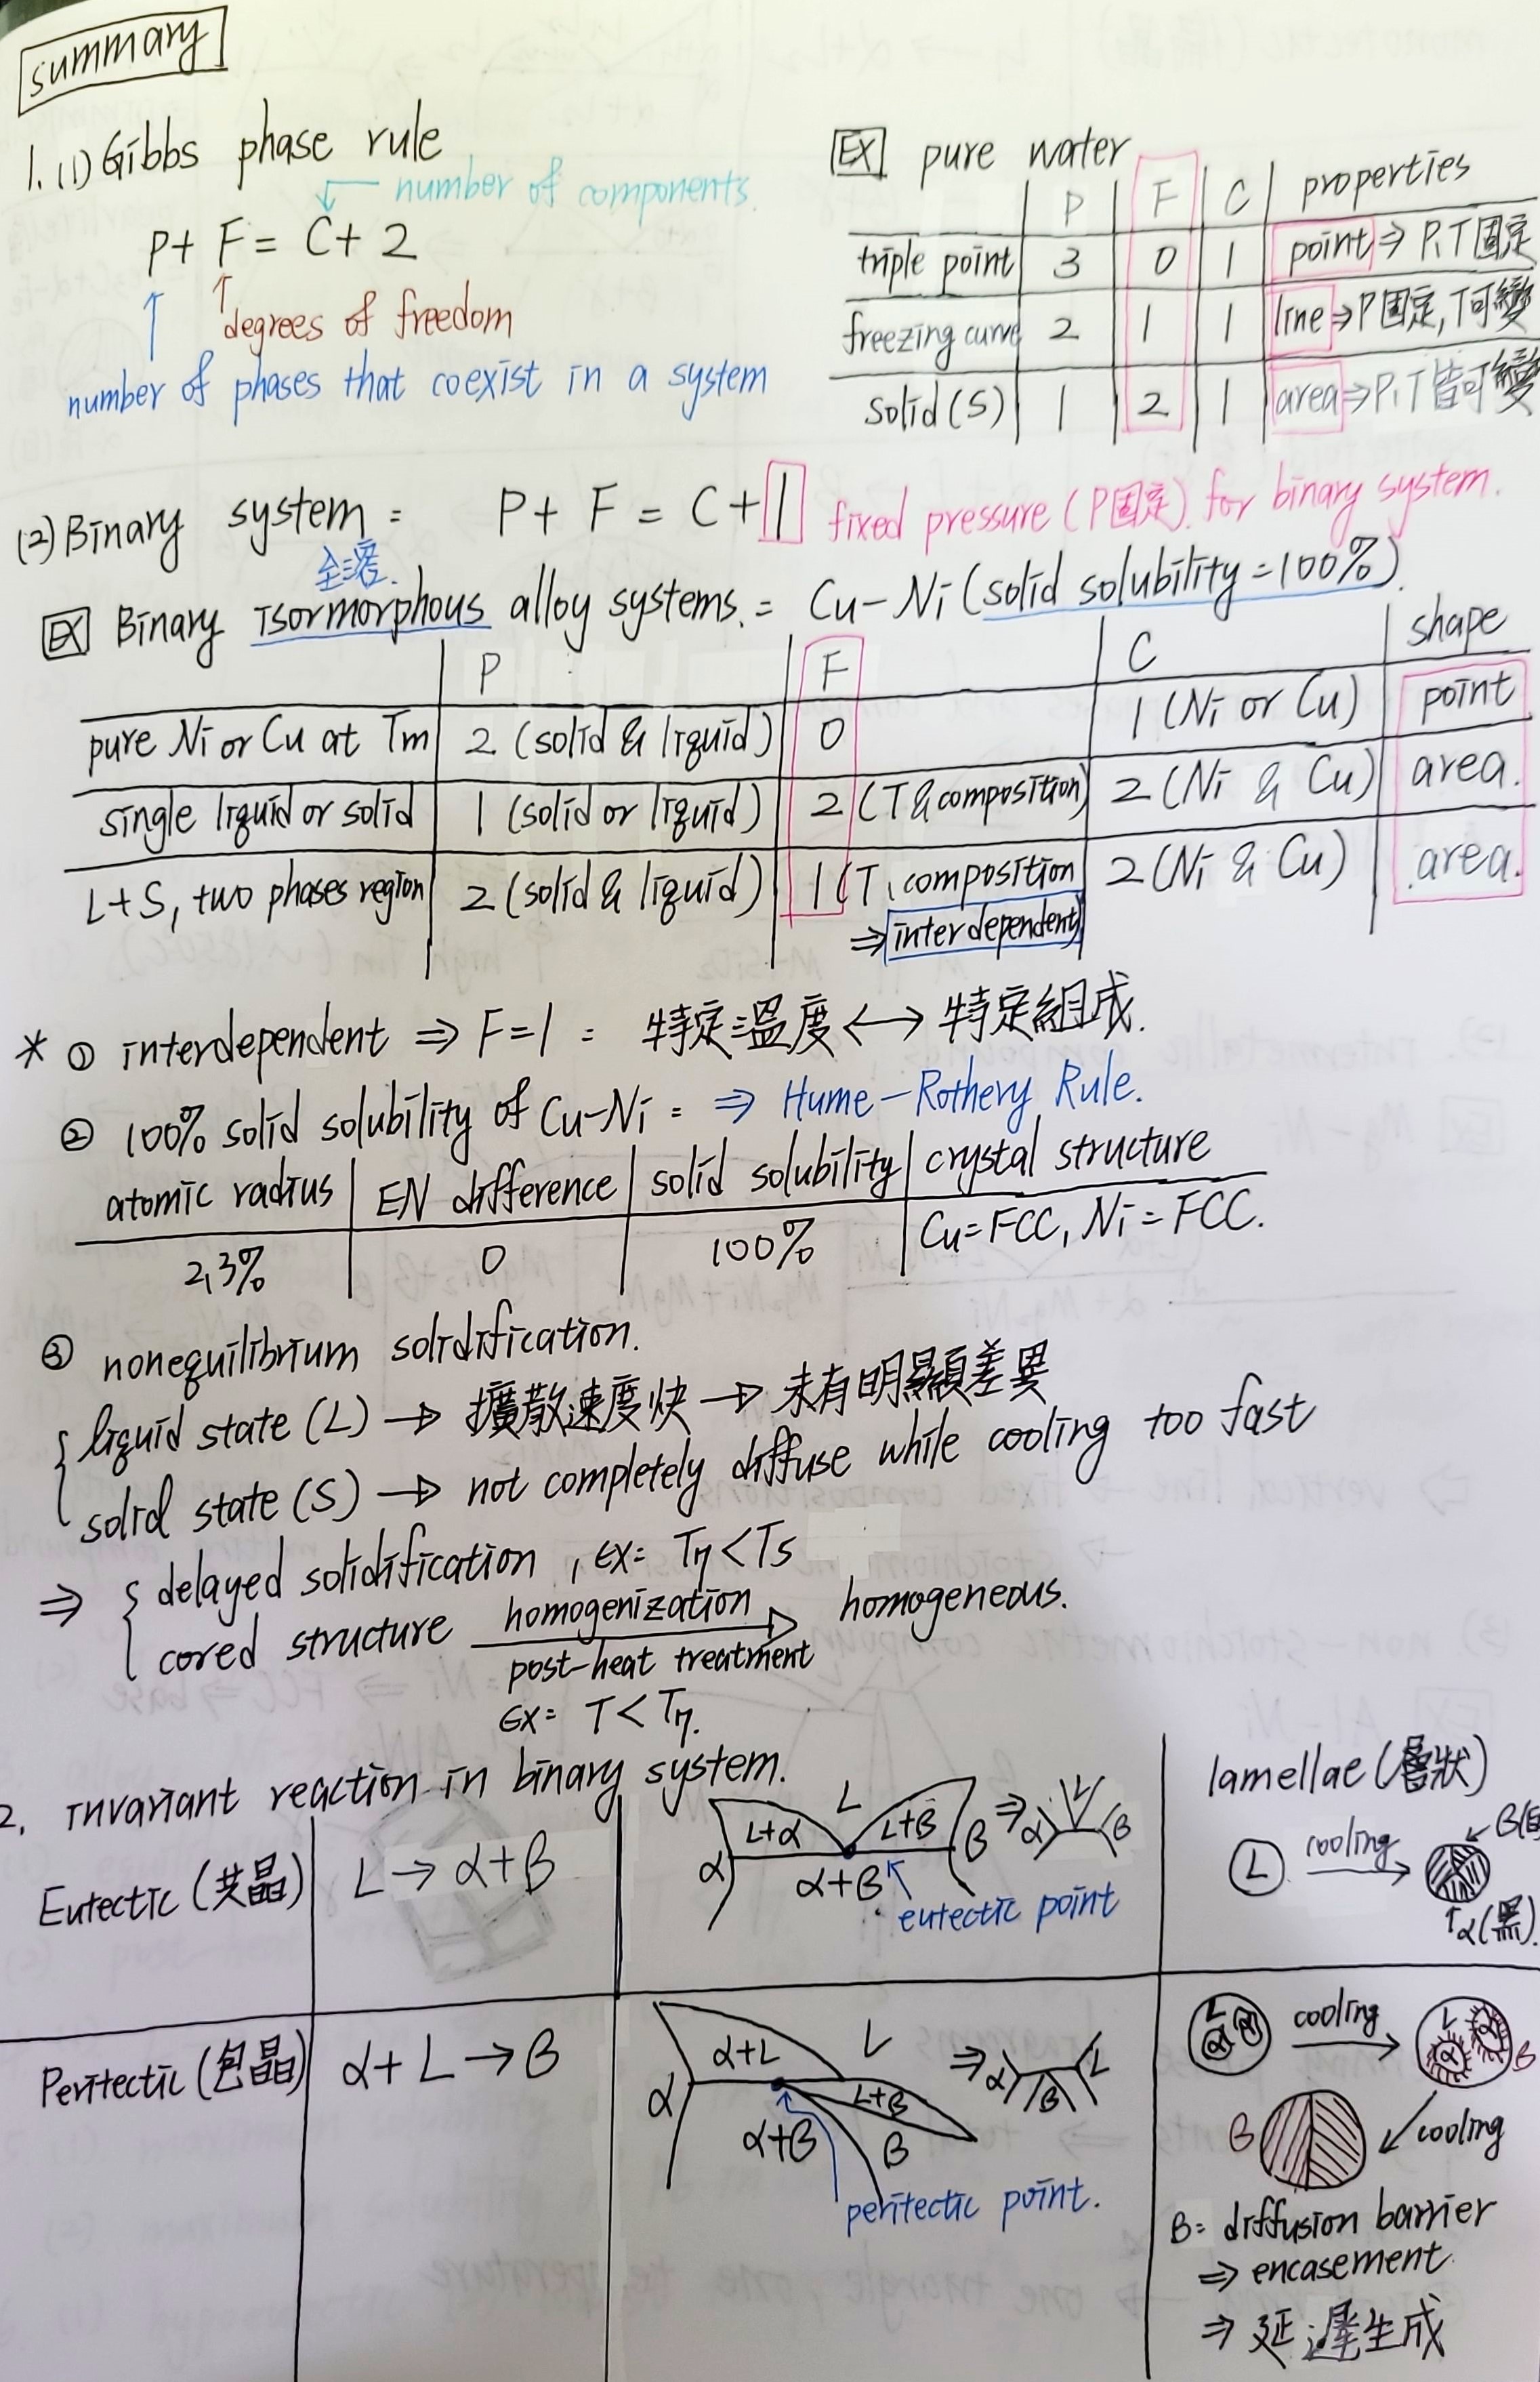 summary
1. (1) Gibbs phase rule
number of components
P + F = C + 2
degrees of freedom
number of phases that coexist in a system
EX pure water
P F C properties
triple point 3 0 1 point ⇒ P,T固定
freezing curve 2 1 1 line ⇒ P固定,T可變
solid (S) 1 2 1 area ⇒ P,T皆可變
(2) Binary system = P + F = C + 1 fixed pressure (P固定) for binary system.
全溶.
EX Binary isormorphous alloy systems. = Cu-Ni (solid solubility = 100%).
P F C shape
pure Ni or Cu at Tm 2 (solid & liquid) 0 1 (Ni or Cu) point
single liquid or solid 1 (solid or liquid) 2 (T & composition) 2 (Ni & Cu) area.
L+S, two phases region 2 (solid & liquid) 1 (T, composition 2 (Ni & Cu) area.
⇒ interdependent)
* ① interdependent ⇒ F=1 = 特定溫度 ↔ 特定組成.
② 100% solid solubility of Cu-Ni = ⇒ Hume-Rothery Rule.
atomic radius EN difference solid solubility crystal structure
2,3% 0 100% Cu=FCC, Ni=FCC.
③ nonequilibrium solidification.
liquid state (L) → 擴散速度快 → 未有明顯差異
solid state (S) → not completely diffuse while cooling too fast
⇒ delayed solidification , ex= T7 < Ts
cored structure homogenization homogeneous.
post-heat treatment
ex= T < T7.
2. invariant reaction in binary system.
Eutectic (共晶) L → α+β
L
L+α L+β
α β
α+β
eutectic point
⇒ α L β
lamellae (層狀)
L cooling
α(黑).
Peritectic (包晶) α + L → β
α+L L
α L+β
α+β β
peritectic point.
⇒ α β L
L α α cooling L α α β
cooling
β
β= diffusion barrier
⇒ encasement.
⇒ 延遲生成